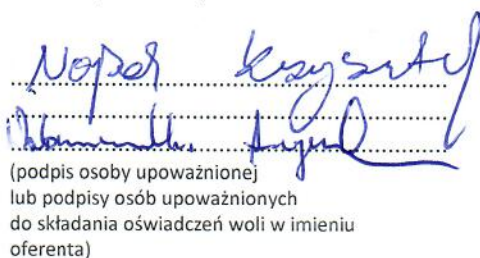 Krzysztof
(podpis osoby upoważnionej
lub podpisy osób upoważnionych
do składania oświadczeń woli w imieniu
oferenta)